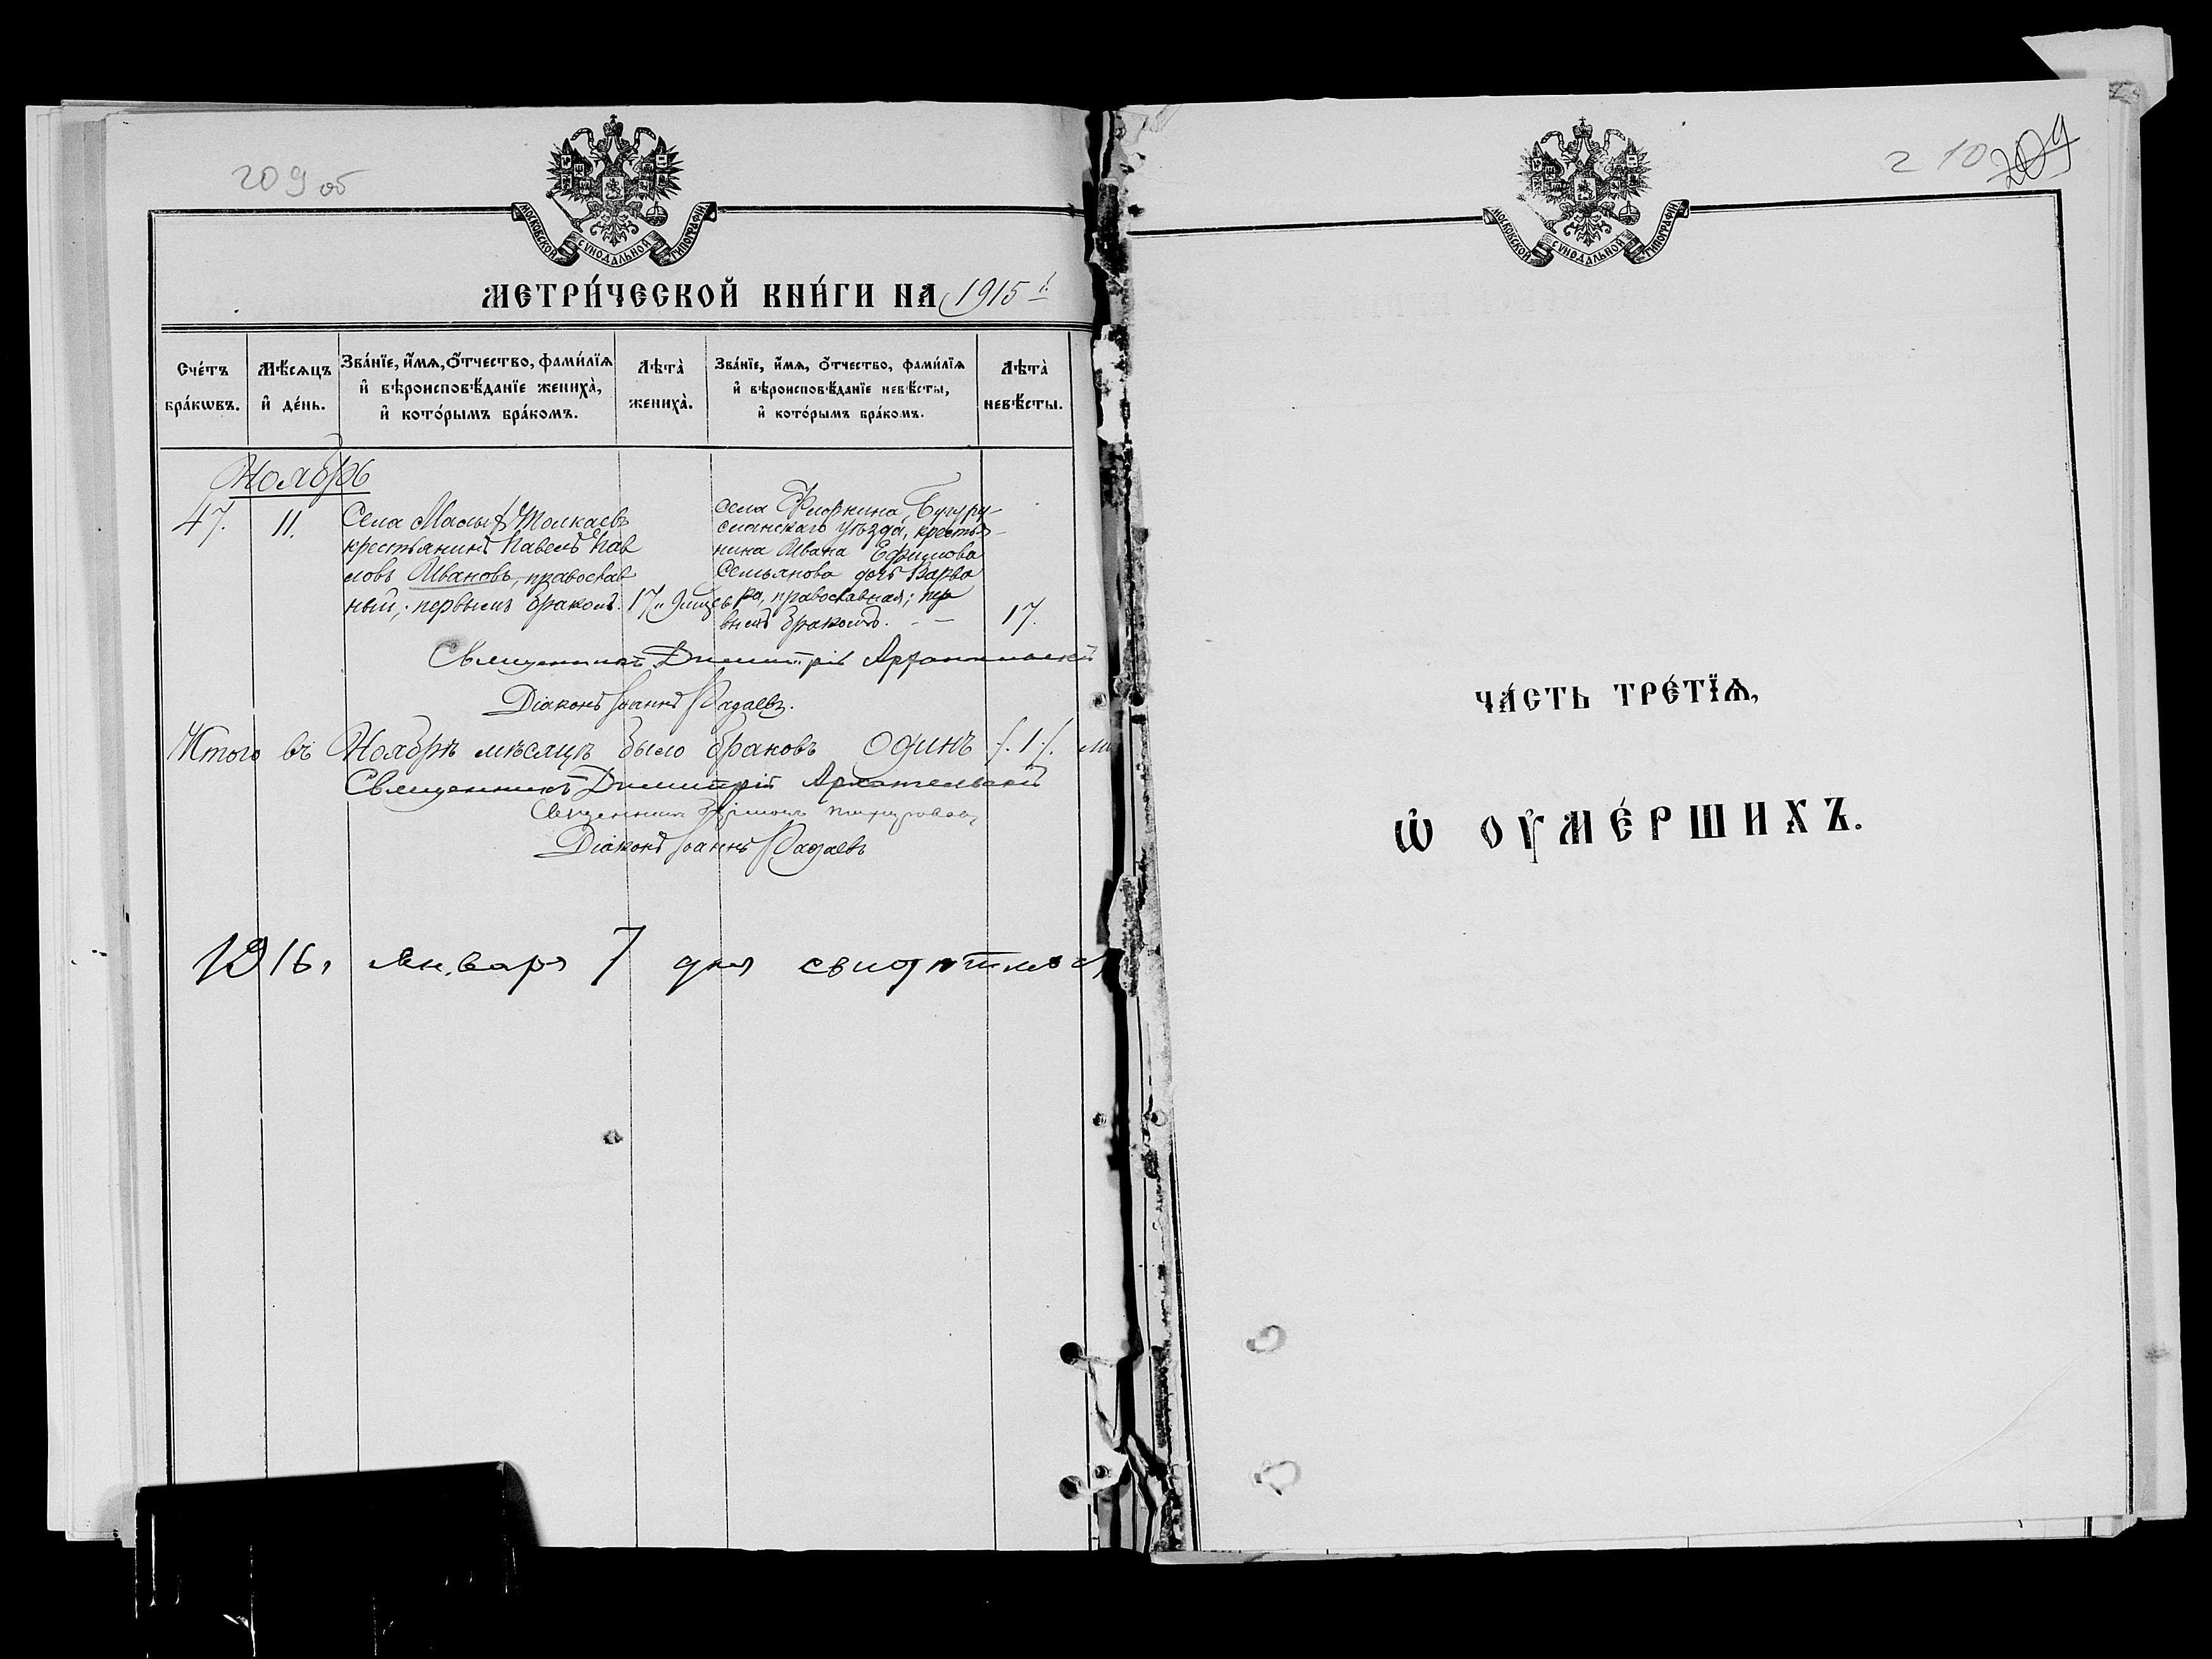 209 об
МОСКОВСКОЙ СѴНОДАЛЬНОЙ ТИПОГРАФІИ
МЕТРИ́ЧЕСКОЙ КНИ́ГИ НА 1915 г.
Сче́тъ бра́кѡвъ.
Мѣ́сяцъ и҆ де́нь.
Зва́нїе, и҆́мѧ, ѻ҆́тчество, фами́лїѧ
и҆ вѣроисповѣ́данїе жениха̀,
и҆ кото́рымъ бра́комъ.
Лѣта̀ жениха̀.
Зва́нїе, и҆́мѧ, ѻ҆́тчество, фами́лїѧ
и҆ вѣроисповѣ́данїе невѣ́сты,
и҆ кото́рымъ бра́комъ.
Лѣта̀ невѣ́сты.
Ноябрь
47. 11.
Села Малых Толкаевъ
крестьянинъ Павелъ Пав
ловъ Ивановъ, православ
ный, первымъ бракомъ.
17
села Бугуру
сланскаго уѣзда, крестья-
нина Ивана Ефимова
Семьянова дочь Варва
ра, православная; пер
вымъ бракомъ.
17.
Священникъ Димитрій Архангельскій
Діаконъ Іоаннъ
Итого въ Ноябрѣ мѣсяцѣ было браковъ одинъ /. 1 /.
Священникъ Димитрій Архангельскій
Священникъ
Діаконъ Іоаннъ
1916 г. января 7 дня
210 209
МОСКОВСКОЙ СѴНОДАЛЬНОЙ ТИПОГРАФІИ
ЧА́СТЬ ТРЕ́ТЇѦ,
Ѡ҆ ОУ҆МЕ́РШИХЪ.